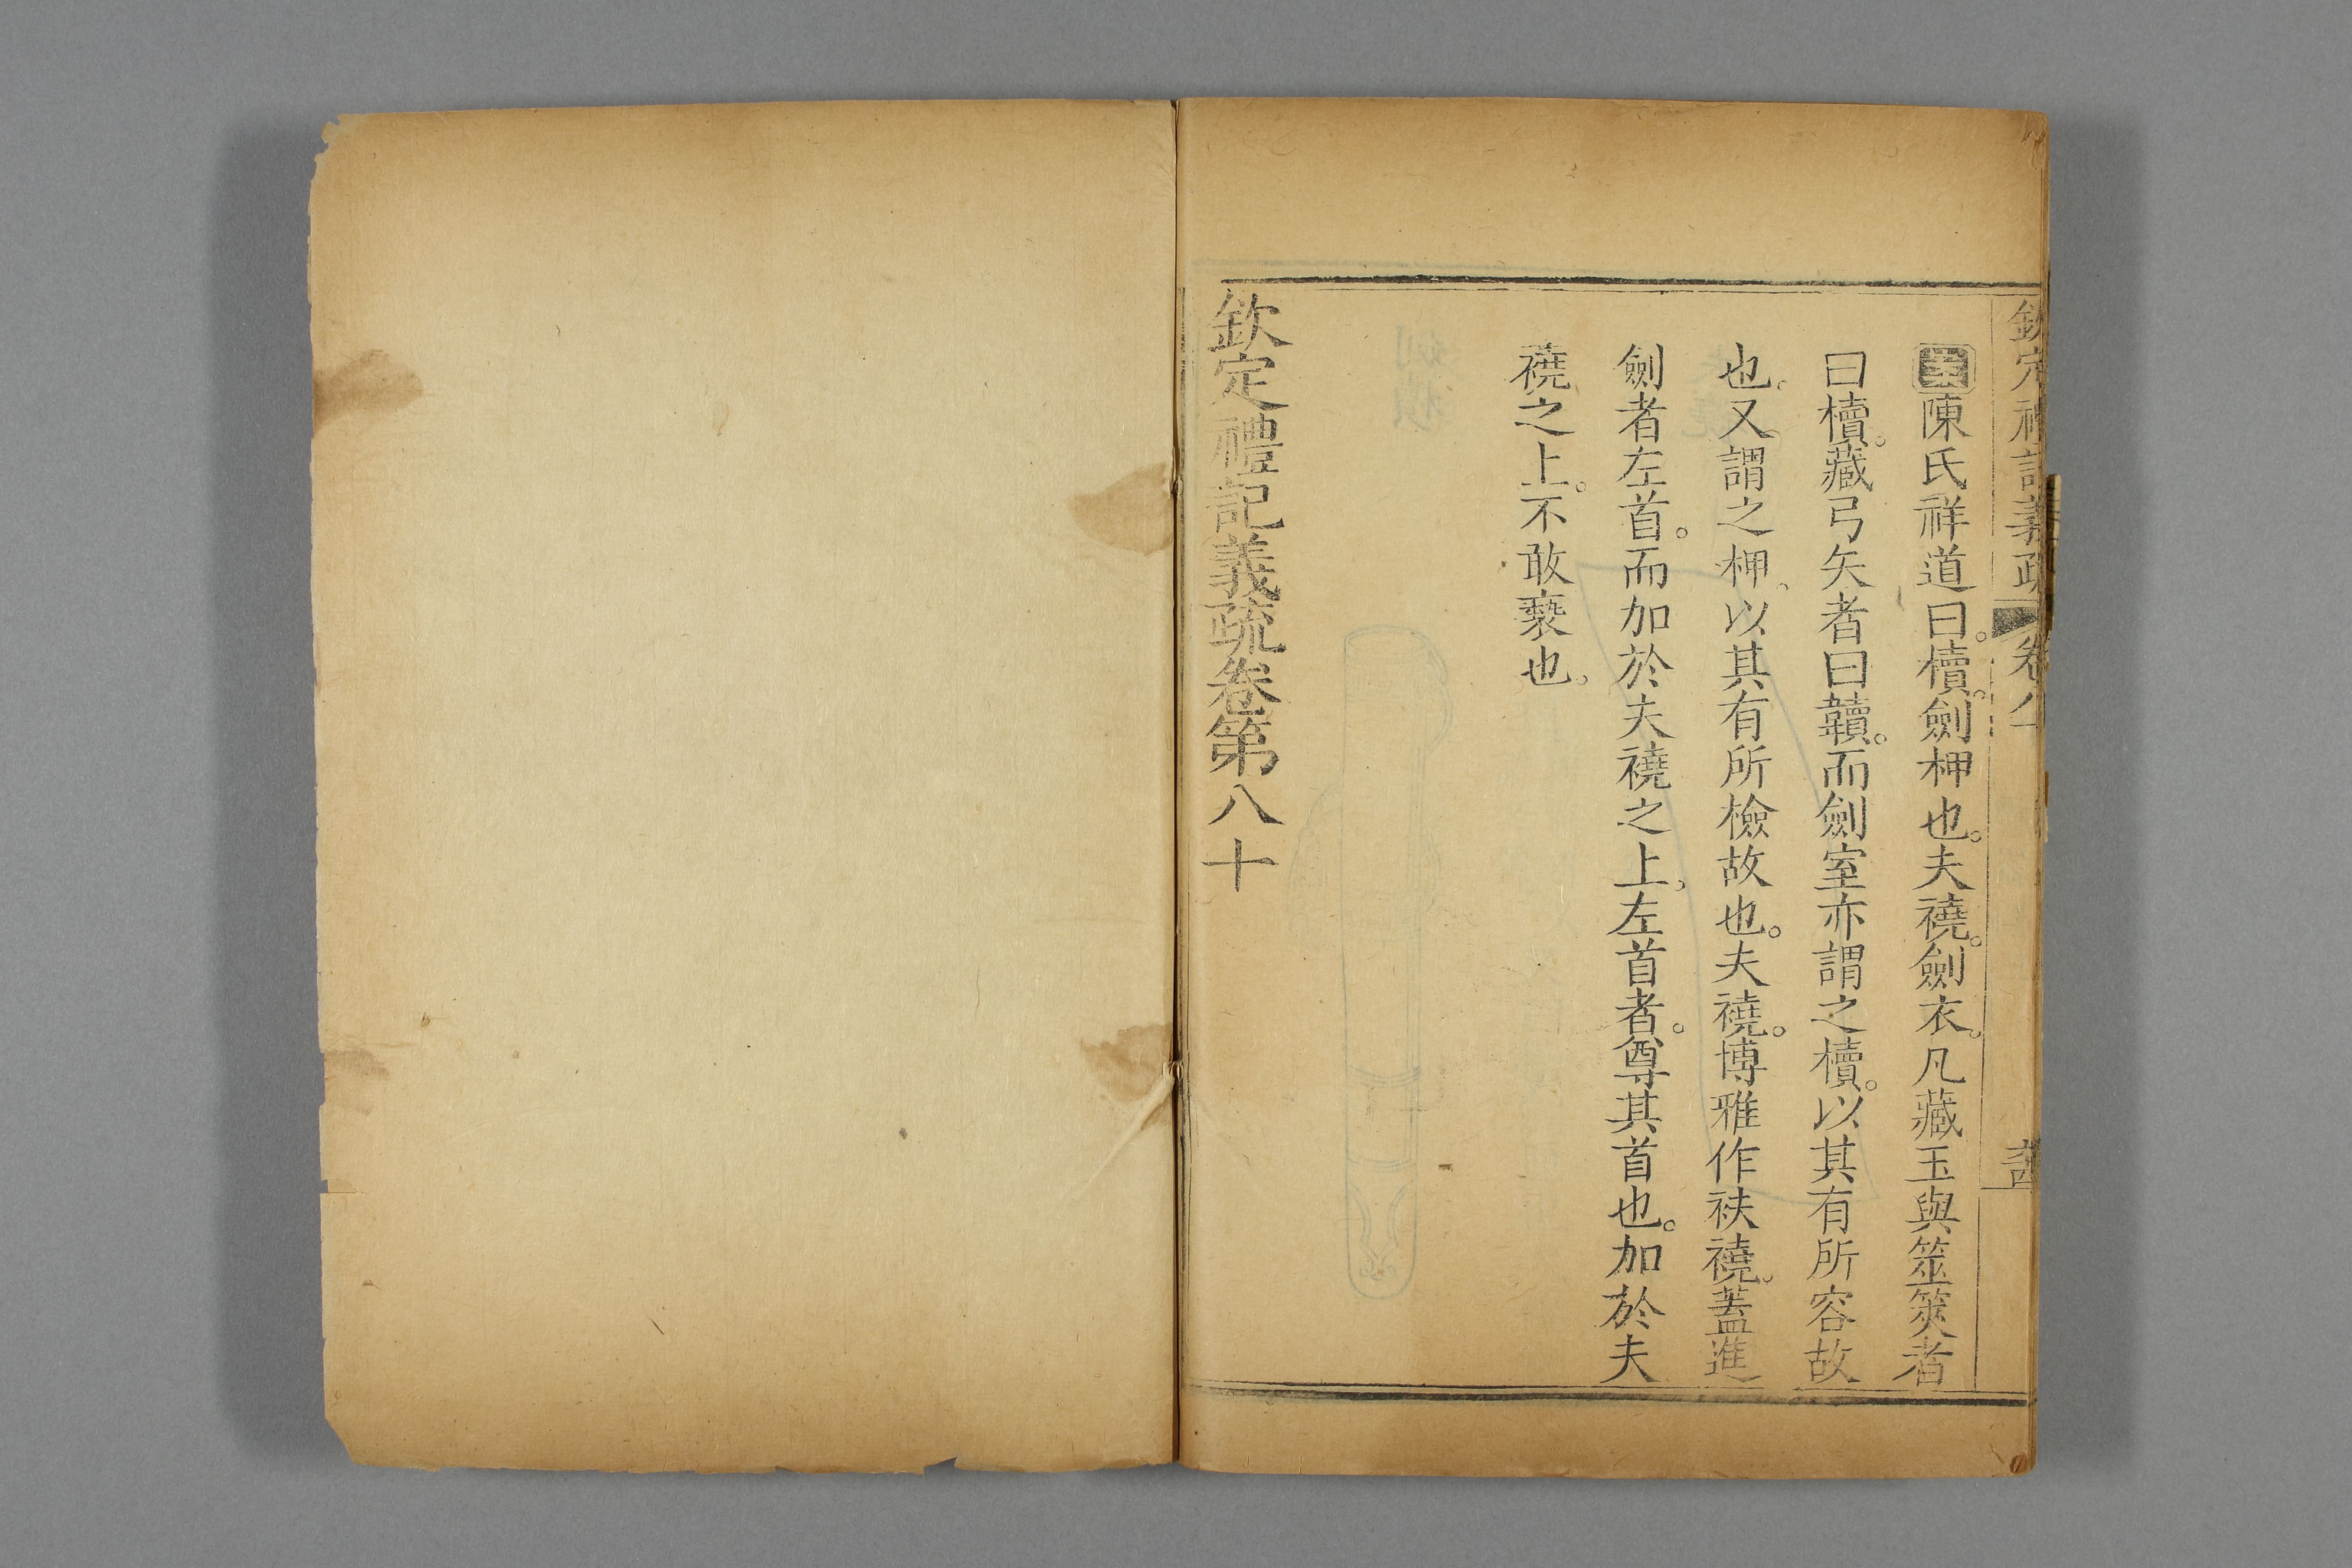 欽定禮記義疏 卷八十
陳氏祥道曰。櫝。劍柙也。夫襓。劍衣。凡藏玉與筮筴者
曰櫝。藏弓矢者曰韥。而劍室亦謂之櫝。以其有所容故
也。又謂之柙。以其有所檢故也。夫襓。博雅作袂襓。蓋進
劍者左首。而加於夫襓之上。左首者。尊其首也。加於夫
襓之上。不敢褻也。
欽定禮記義疏卷第八十